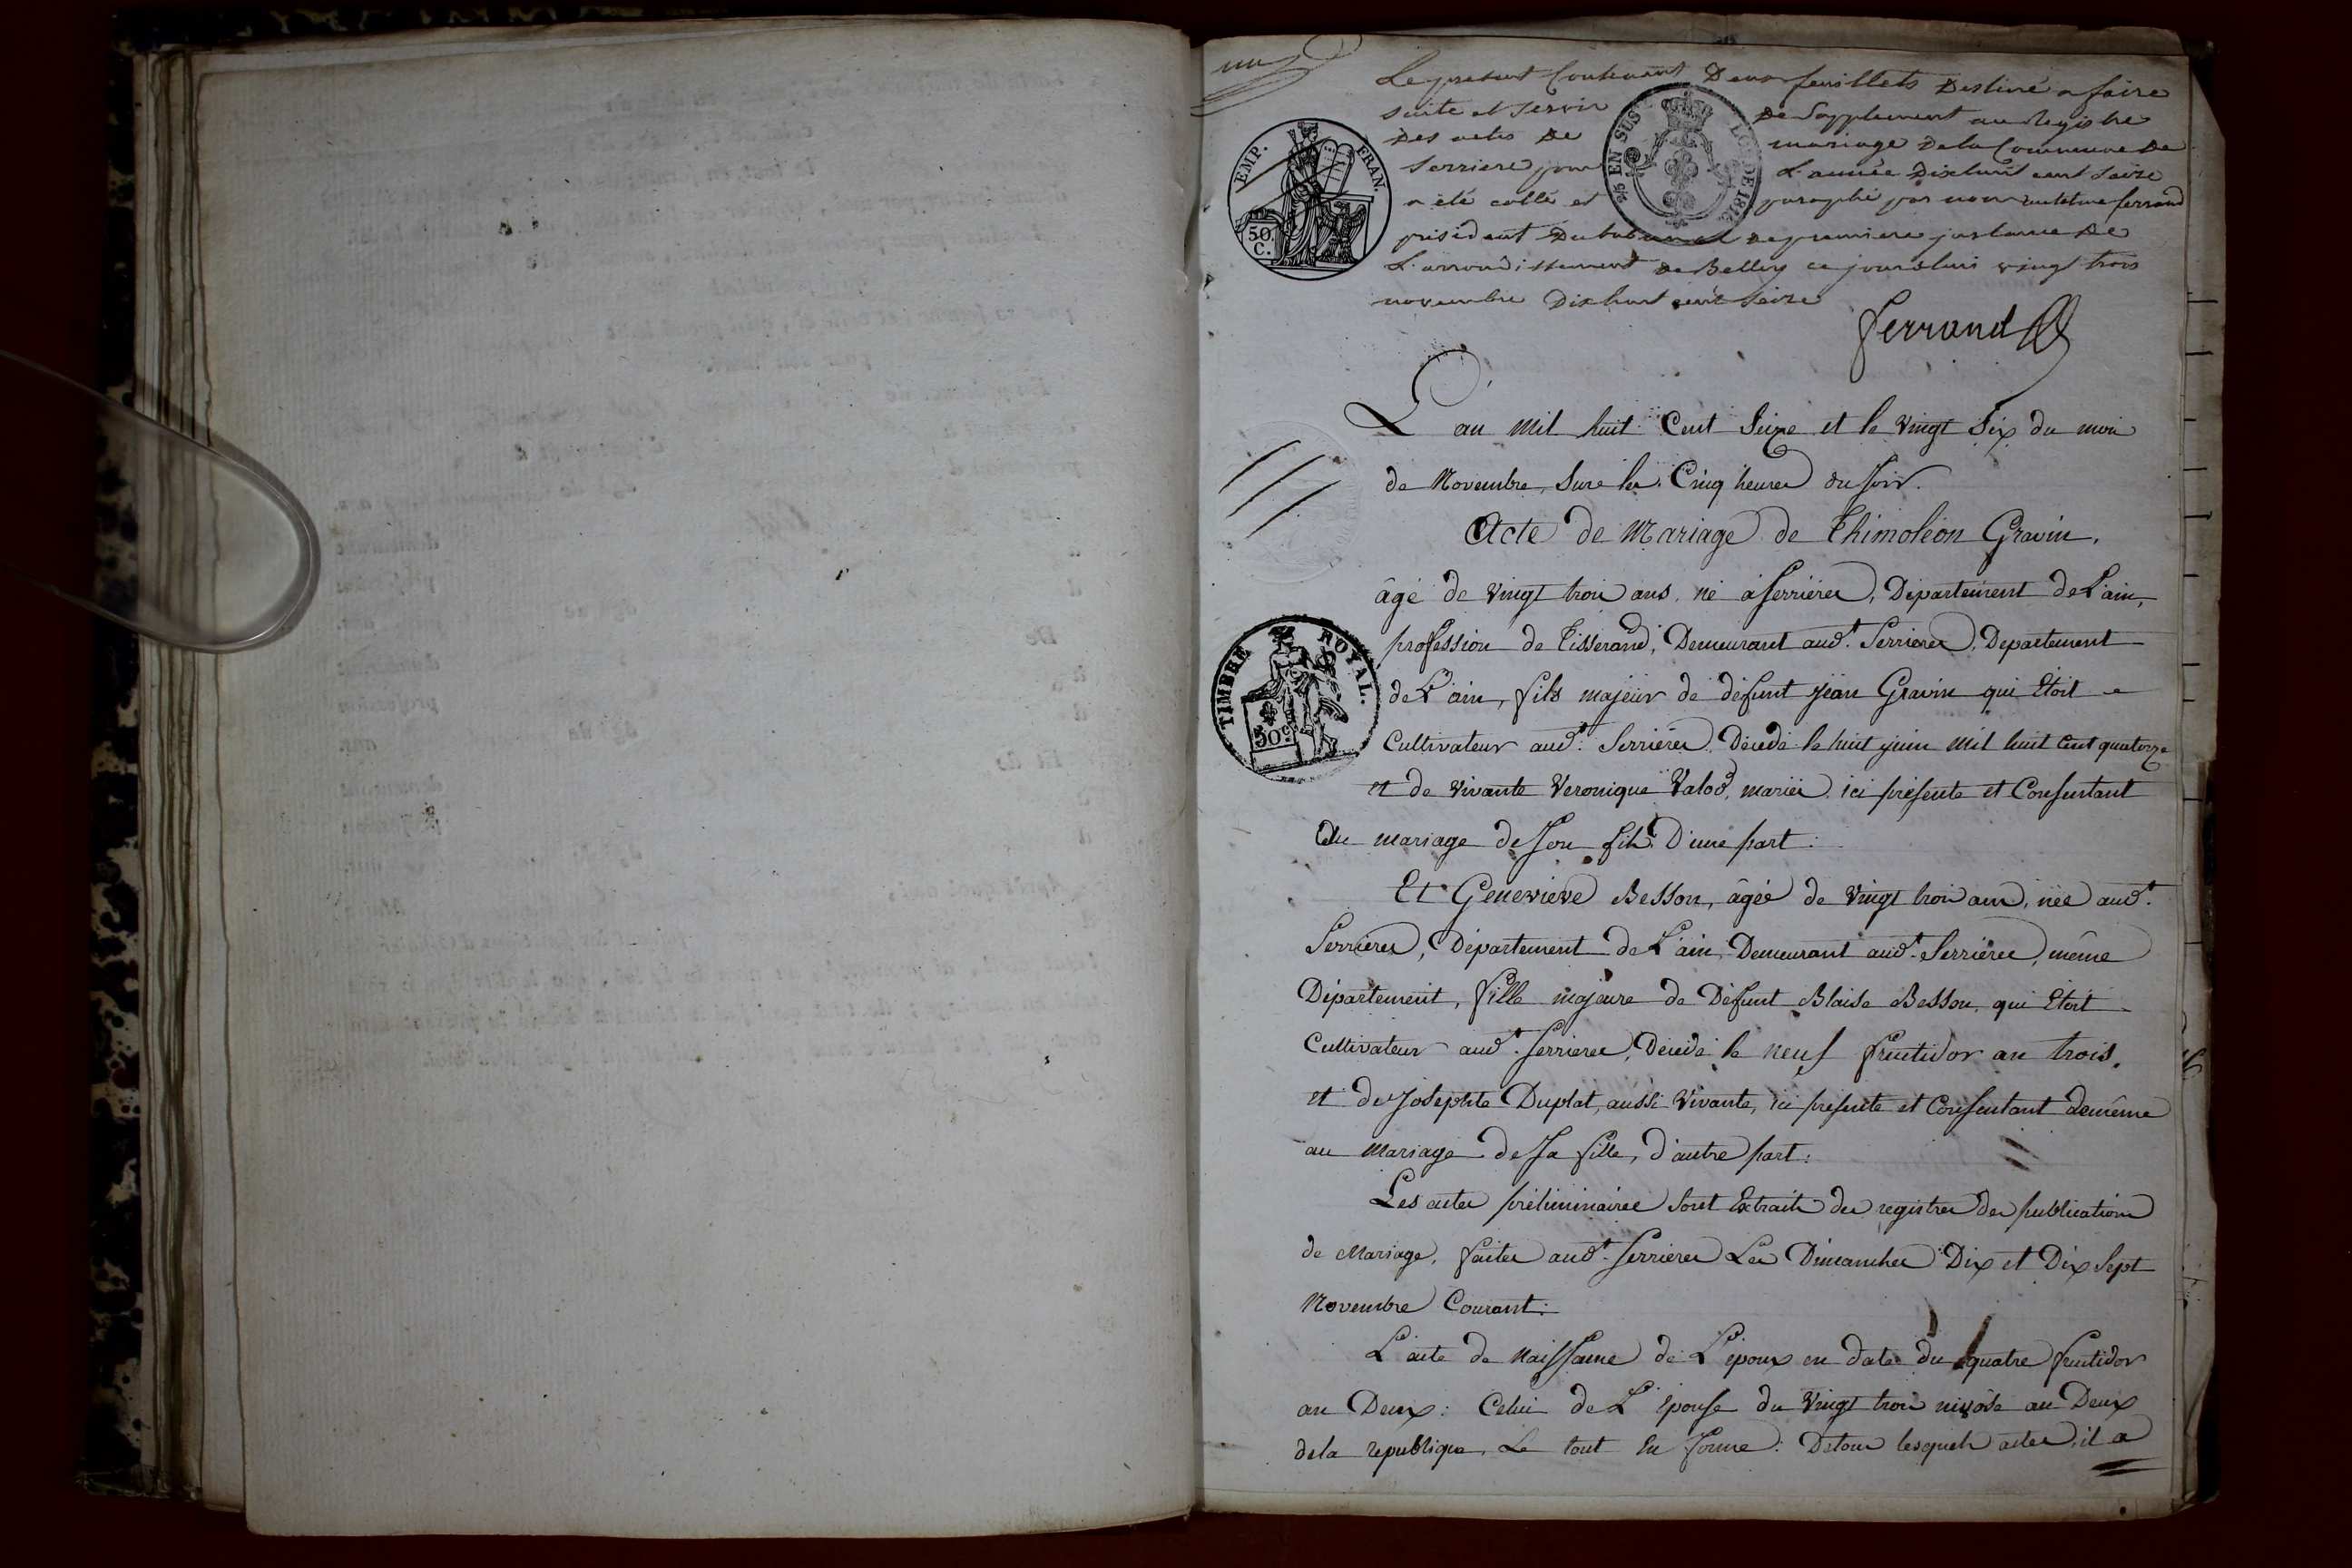 Le présent Contenant Deux feuillets Destiné a faire
suite et servir De Supplement au Registre
Des actes De mariage De la Commune De
Serriere pour L'année Dixhuit cent Seize
a été cotté et paraphé par nous antelme ferrand
président Du tribunal De premiere instance De
L'arrondissement De Belley ce jourd'hui vingt trois
novembre Dixhuit cent Seize
ferrand
EMP. FRAN.
50. C.
25 EN SUS LOI DE 1816
L'an mil huit Cent Seize et le Vingt Six du mois
de Novembre, Sure les Cinq heures du Soir.
Acte de Mariage de Thimoléon Gravin,
âgé de Vingt trois ans, né à Serrières, Département de L'ain,
profession de Tisserand, Demeurant aud.t Serrieres, Departement
de L'ain, fils majeur de défunt Jean Gravin qui Etoit
Cultivateur aud.t Serriéres, Décédé le huit juin mil huit Cent quatorze
et de Vivante Veronique Valod, mariés, ici présente et Consentant
Au mariage de Son fils D'une part :
TIMBRE ROYAL.
50c
Et Geneviève Besson, âgée de Vingt trois ans, née aud.t
Serrières, Département de L'ain, Demeurant aud.t Serriéres, même
Département, fille majeure de Défunt Blaise Besson, qui Etoit
Cultivateur aud.t Serrieres, Décédé le neuf fructidor an trois,
et de Josephte Duplat, aussi Vivante, ici présente et Consentant demême
au Mariage de Sa fille, d'autre part :
Les actes préliminaires Sont Extraits des registres des publications
de Mariage, faites aud.t Serrieres Les Dimanches Dix et Dix Sept
Novembre Courant :
L'acte de Naissance de L'époux en date du quatre fructidor
an Deux : Celui de L'épouse du Vingt trois nivôse an Deux
de la republique, Le tout En forme : De tous lesquels actes, il a